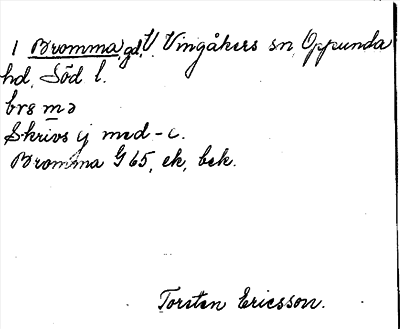 1 Bromma, gd, V. Vingåkers sn, Oppunda
hd, Söd l.
Skrivs ej med -c.
Bromma G 65, ek, bek.
Torsten Ericsson.